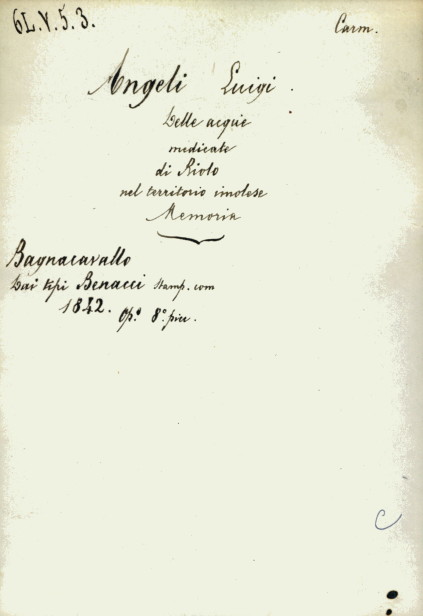 6L.V.5.3.
Carm.
Angeli Luigi
Delle acque
medicate
di Riolo
nel territorio imolese
Memoria
Bagnacavallo
Dai tipi Benacci stamp. com
1842. Op.º 8º picc.
C